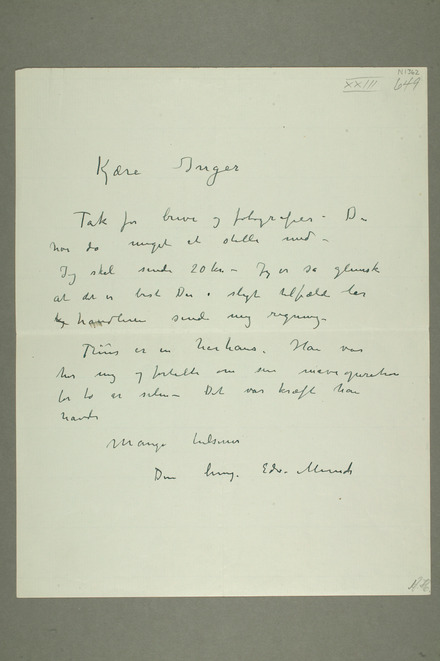 N 1362
XXIII 649
Kjære Inger
Tak for breve og fotografier – Du
har da meget at stelle med –
Jeg skal sende 20 kr – Jeg er så glemsk
at det er best Du i sligt tilfælde lar
handleren sende mig regning –
er en her hans. Han var
hos mig og fortalte om en maveoperation
for to år siden – Det var kræft han
havde
Mange hilsener
Din heng. Edv. Munch